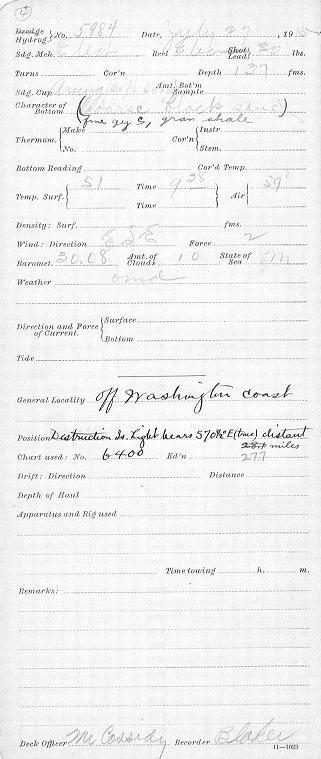 Dredge Hydrog. } No. 5984 Date, July 27, 1915
Sdg. Mch. Elec Reel Elec Shot Lead } 30 lbs.
Turns Cor'n Depth 137 fms.
Sdg. Cup Amt. Bot'm Sample
Character of Bottom ( Coarse Black sand )
fne gy S, gran shale
Thermom. { Make Cor'n { Instr.
No. Stem.
Bottom Reading Cor'd Temp.
Temp. Surf. { 51 Time 9 28 Air { 59
Time
Density: Surf. fms.
Wind: Direction ESE Force 2
Baromet. 30.08 Amt. of Clouds 10 State of Sea
Weather
Direction and Force of Current. { Surface
Bottom
Tide
General Locality off Washington coast
Position Destruction Is. Light bears S70½°E (true) distant
28.1 miles
Chart used: No. 6400 Ed'n 27.7
Drift: Direction Distance
Depth of Haul
Apparatus and Rig used
Time towing h. m.
Remarks:
Deck Officer McCassidy Recorder Blaker
11—1023